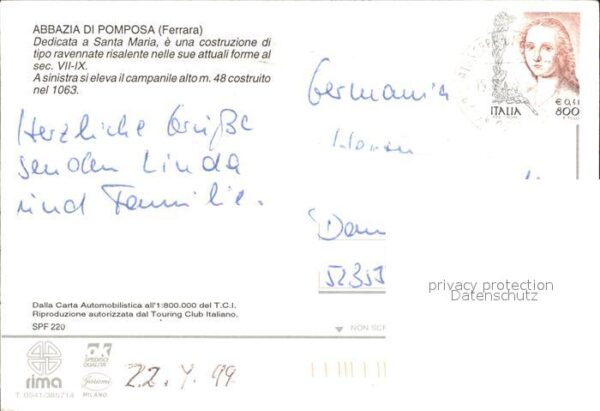 ABBAZIA DI POMPOSA (Ferrara)
Dedicata a Santa Maria, è una costruzione di
tipo ravennate risalente nelle sue attuali forme al
sec. VII-IX.
A sinistra si eleva il campanile alto m. 48 costruito
nel 1063.
Herzliche Grüße
senden Linda
und Familie.
ITALIA
€ 0,41
800
Germania
52353
privacy protection
Datenschutz
Dalla Carta Automobilistica all'1:800.000 del T.C.I.
Riproduzione autorizzata dal Touring Club Italiano.
SPF 220
NON SCR
rima
T. 0541/385714
MILANO